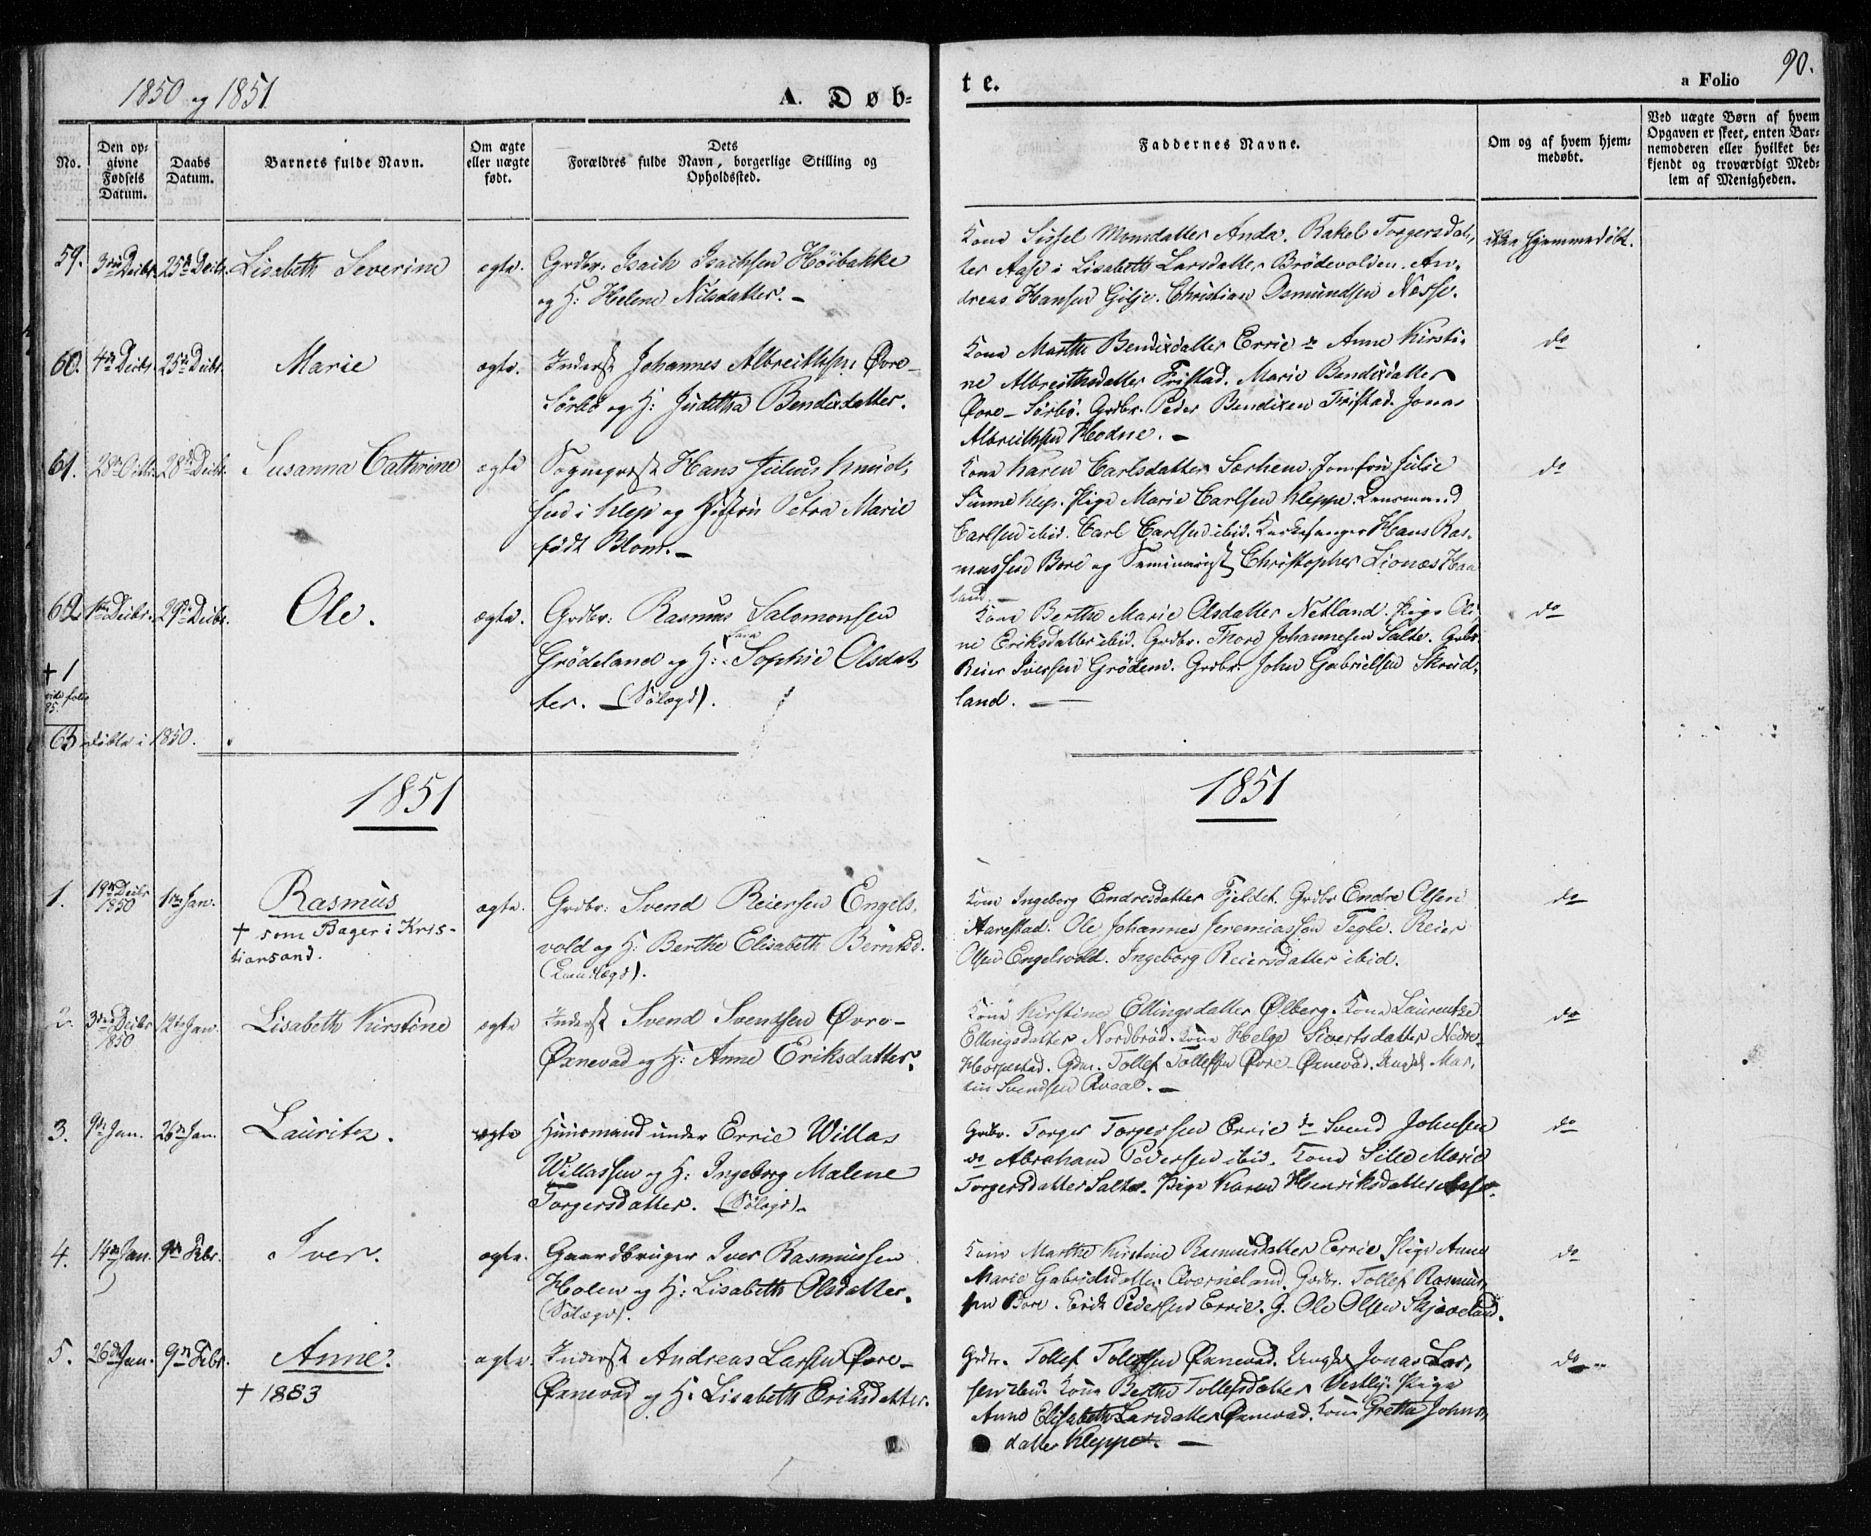 1850 og 1851.
A. Døb-
te.
a Folio
90.
No.
Den op-
givne
Fødsels
Datum.
Daabs
Datum.
Barnets fulde Navn.
Om ægte
eller uægte
født.
Dets
Forældres fulde Navn, borgerlige Stilling og
Opholdssted.
Faddernes Navne.
Om og af hvem hjem-
medøbt.
Ved uægte Børn af hvem
Opgaven er skeet, enten Bar-
nemoderen eller hvilket be-
kjendt og troværdigt Med-
lem af Menigheden.
59.
3die Decbr.
25de Decbr.
Lisabeth Severine
ægte.
Grdbr. Isach Isachsen Höibakke
og H: Helene Nilsdatter. -
Kone Sissel Monsdatter Anda. Rakel Torgersdat,
ter Aase i Lisabeth Larsdatter Brödevolden. An-
dreas Hansen Gilje. Christian Osmundsen Næsse.
ikke hjemmedöbt.
60.
4de Decbr.
25de Decbr.
Marie
ægte.
Inderst Johannes Albreithsen Øvre-
Sörbö og H: Juditha Bendixdatter.
Kone Marthe Bendixdatter Errie do Anne Kirsti-
ne Albreithsdatter Tristad. Marie Bendixdatter
Øvre-Sörbö. Grdbr. Peder Bendixen Tristad. Jonas
Albreithsen Hodne. -
do
61.
28de Octbr.
28de Decbr.
Susanna Cathrine
ægte
Sognepræst Hans Julius Knud,
sen i Klep og Hustru Petra Marie
född Blom. -
Kone Karen Carlsdatter Særheim. Jomfru Julie
Sinne Klep. Pige Marie Carlsen Kleppe. Lensmand
Carlsen ibid. Carl Carlsen ibid. Kirkesanger Hans Ras-
mussen Bore og Seminarist Christopher Lionæs Haa
land. -
do
62
1ste Decbr.
29de Decbr.
Ole.
ægte.
Grdbr: Rasmus Salomonsen
Grödeland og H: Sophie Olsdat,
ter. - (Sölægd).
Kone Berthe Marie Olsdatter Netland. Pige Oli-
ne Eriksdatter ibid. Grdbr. Thore Johannesen Salte. Grdbr
Reier Iversen Grödem. Grdbr. John Gabrielsen Skreid,
land. -
do
+ 1
vide folio
85.
63 döbte i 1850.
1851
1851
1.
19de Decbr
1850
1ste Jan.
Rasmus
+ som Bager i Kris-
tiansand.
ægte.
Grdbr: Svend Reiersen Engels,
vold og H: Berthe Elisabeth Berntsd.
Kone Ingeborg Endresdatter Fjeldet. Grdbr Endre Olsen
Aarestad. Ole Johannes Jeremiassen Tegle. Reier
Olsen Engelsvold. Ingeborg Reiersdatter ibid.
do
2.
3die Decbr
1850
12te Jan.
Lisabeth Kirstine
ægte
Inderst Svend Svendsen Øvre-
Øxnevad og H: Anne Eriksdatter.
Kone Kirstine Ellingsdatter Ølberg. Kone Laurentze
Ellingsdatter Nordbröd. Kone Helge Sivertsdatter Nedre
Horpestad. Gdbr. Tollef Tollefsen Øvre-Øxnevad. Ungk. Mar,
tin Svendsen Qvaal. -
do
3.
9de Jan.
26de Jan.
Lauritz.
ægte
Huusmand under Errie Willas
Willassen og H: Ingeborg Malene
Torgersdatter. (Sölægd).
Grdbr. Torger Torgersen Errie do Svend Johnsen
do Abraham Pedersen ibid. Kone Sille Marie
Torgersdatter Salte. Pige Karen Henriksdatter Aase.
do
4.
14de Jan.
9de Febr.
Iver.
ægte.
Gaardbruger Iver Rasmussen
Holen og H: Lisabeth Olsdatter.
(Sölægd).
Kone Marthe Kirstine Rasmusdatter Errie Pige Anne
Marie Gabrielsdatter Qverneland. Grdbr. Tollef Rasmus,
sen Bore. Erik Pedersen Errie. G. Ole Olsen Skjæveland.
do
5.
26de Jan.
9de Febr.
Anne.
+ 1883
ægte.
Inderst Andreas Larsen Øvre-
Øxnevad og H. Lisabeth Eriksdatter.
Grdbr. Tollef Tollefsen Øxnevad. Ungk. Jonas Lar,
sen ibid. Kone Berthe Tollefsdatter Vestly. Pige
Anne Elisabeth Larsdatter Øxnevad. Kone Grethe Johns,
datter Kleppe. -
do